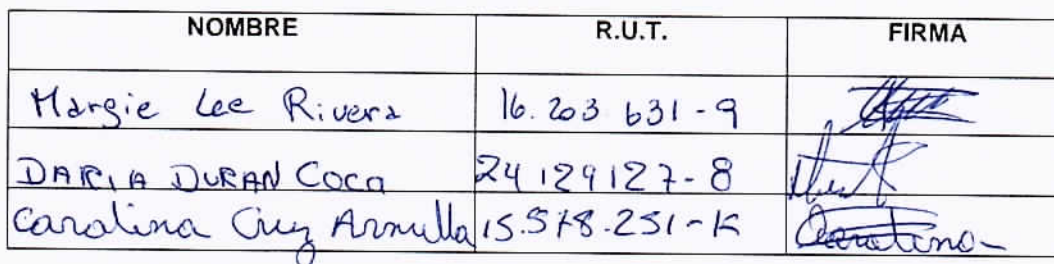 NOMBRE R.U.T. FIRMA
Margie Lee Rivera 16.203.631-9
DARIA DURAN COCA 24129127-8
Carolina Cruz 15.578.251-K Carolina